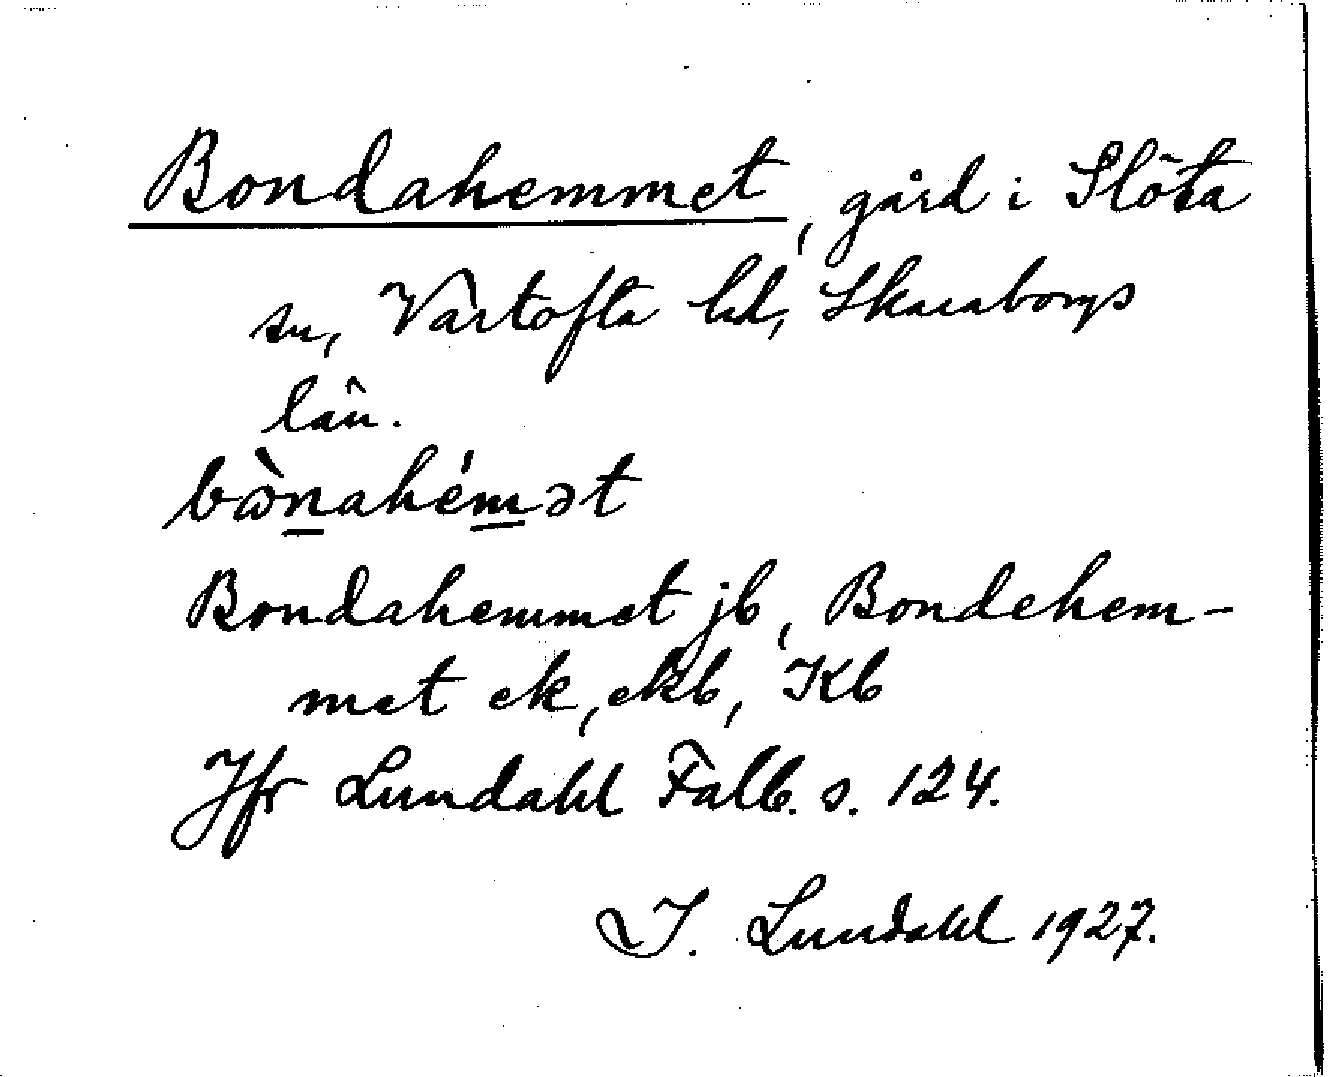 Bondahemmet, gård i Slöta
sn, Vartofta hd, Skaraborgs
län.
bɷ̀nahémət
Bondahemmet jb, Bondehem-
met ek, ekb, Kb
Jfr Lundahl Falb. s. 124.
I. Lundahl 1927.